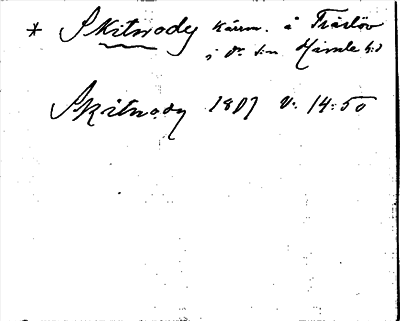 * Skitnody kärrn. å Träslöv
i d:o s:n Himle hd
Skitnody 1807 v. 14:50